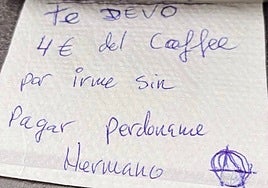 Te DEVO
4€ del Coffee
por irme sin
Pagar Perdoname
Hermano